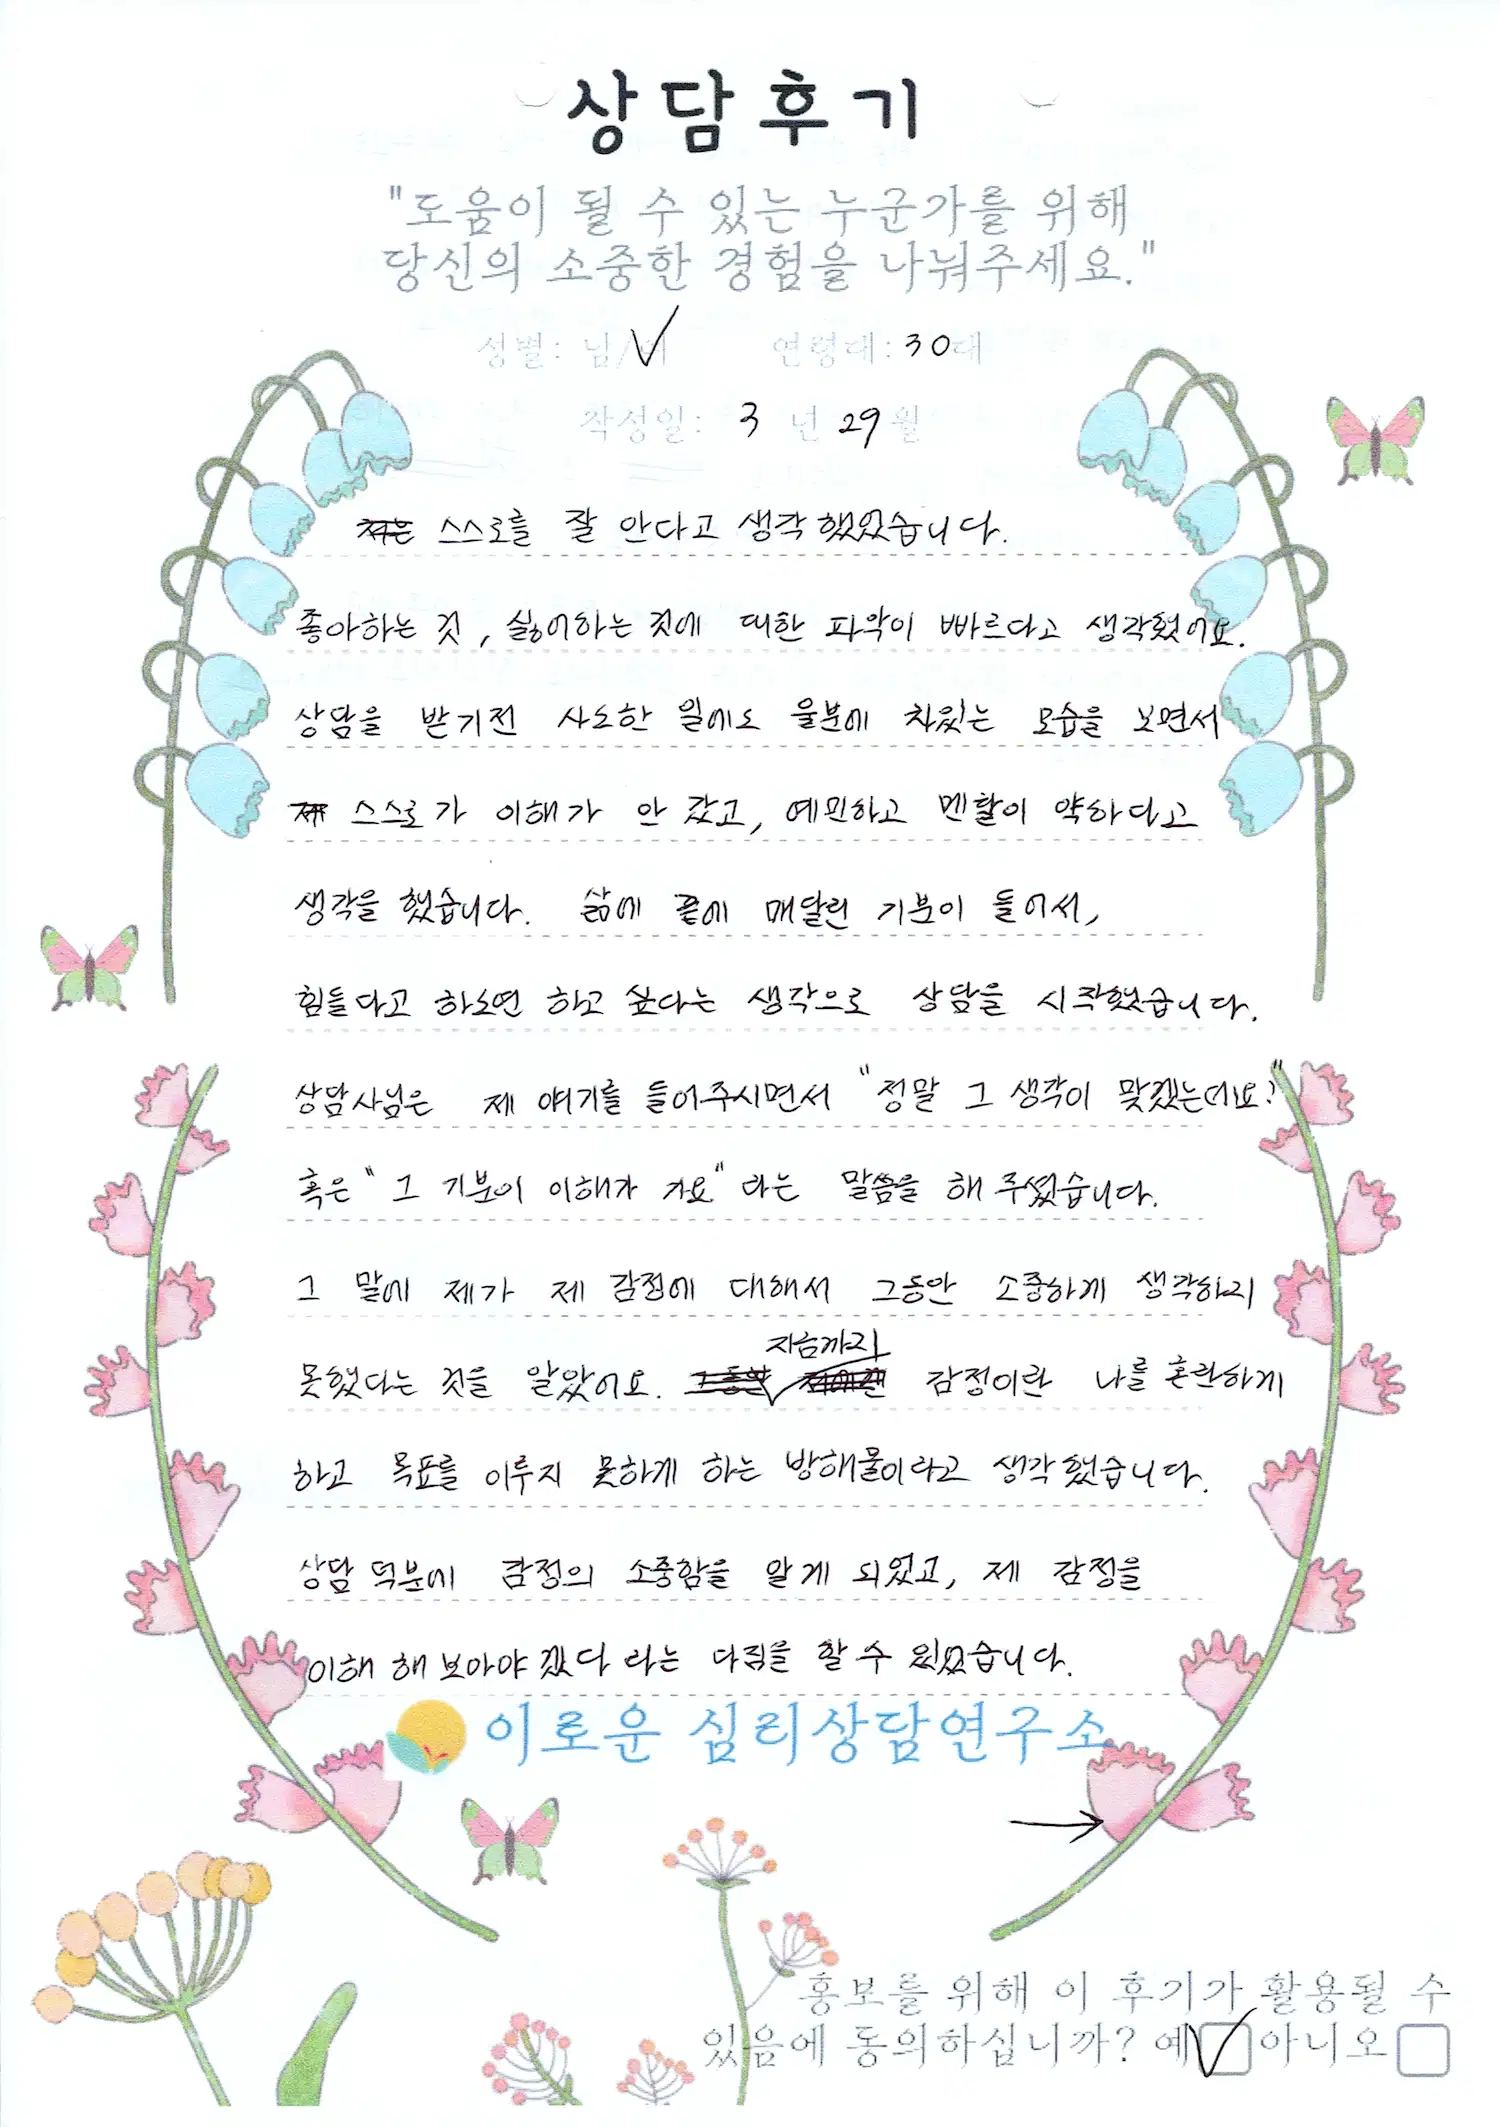 상담후기
"도움이 될 수 있는 누군가를 위해
당신의 소중한 경험을 나눠주세요."
성별: 남/여 연령대: 30대
작성일: 3 년 29 월
스스로를 잘 안다고 생각했었습니다.
좋아하는 것, 싫어하는 것에 대한 파악이 빠르다고 생각했어요.
상담을 받기전 사소한 일에도 울분에 차있는 모습을 보면서
스스로가 이해가 안 갔고, 예민하고 멘탈이 약하다고
생각을 했습니다. 삶에 끝에 매달린 기분이 들어서,
힘들다고 하소연 하고 싶다는 생각으로 상담을 시작했습니다.
상담사님은 제 얘기를 들어주시면서 "정말 그 생각이 맞겠는데요?"
혹은 "그 기분이 이해가 가요" 라는 말씀을 해 주셨습니다.
그 말에 제가 제 감정에 대해서 그동안 소중하게 생각하지
못했다는 것을 알았어요. 지금까지 감정이란 나를 혼란하게
하고 목표를 이루지 못하게 하는 방해물이라고 생각했습니다.
상담 덕분에 감정의 소중함을 알게 되었고, 제 감정을
이해 해 보아야 겠다 라는 다짐을 할 수 있었습니다.
이로운 심리상담연구소
홍보를 위해 이 후기가 활용될 수
있음에 동의하십니까? 예 아니오